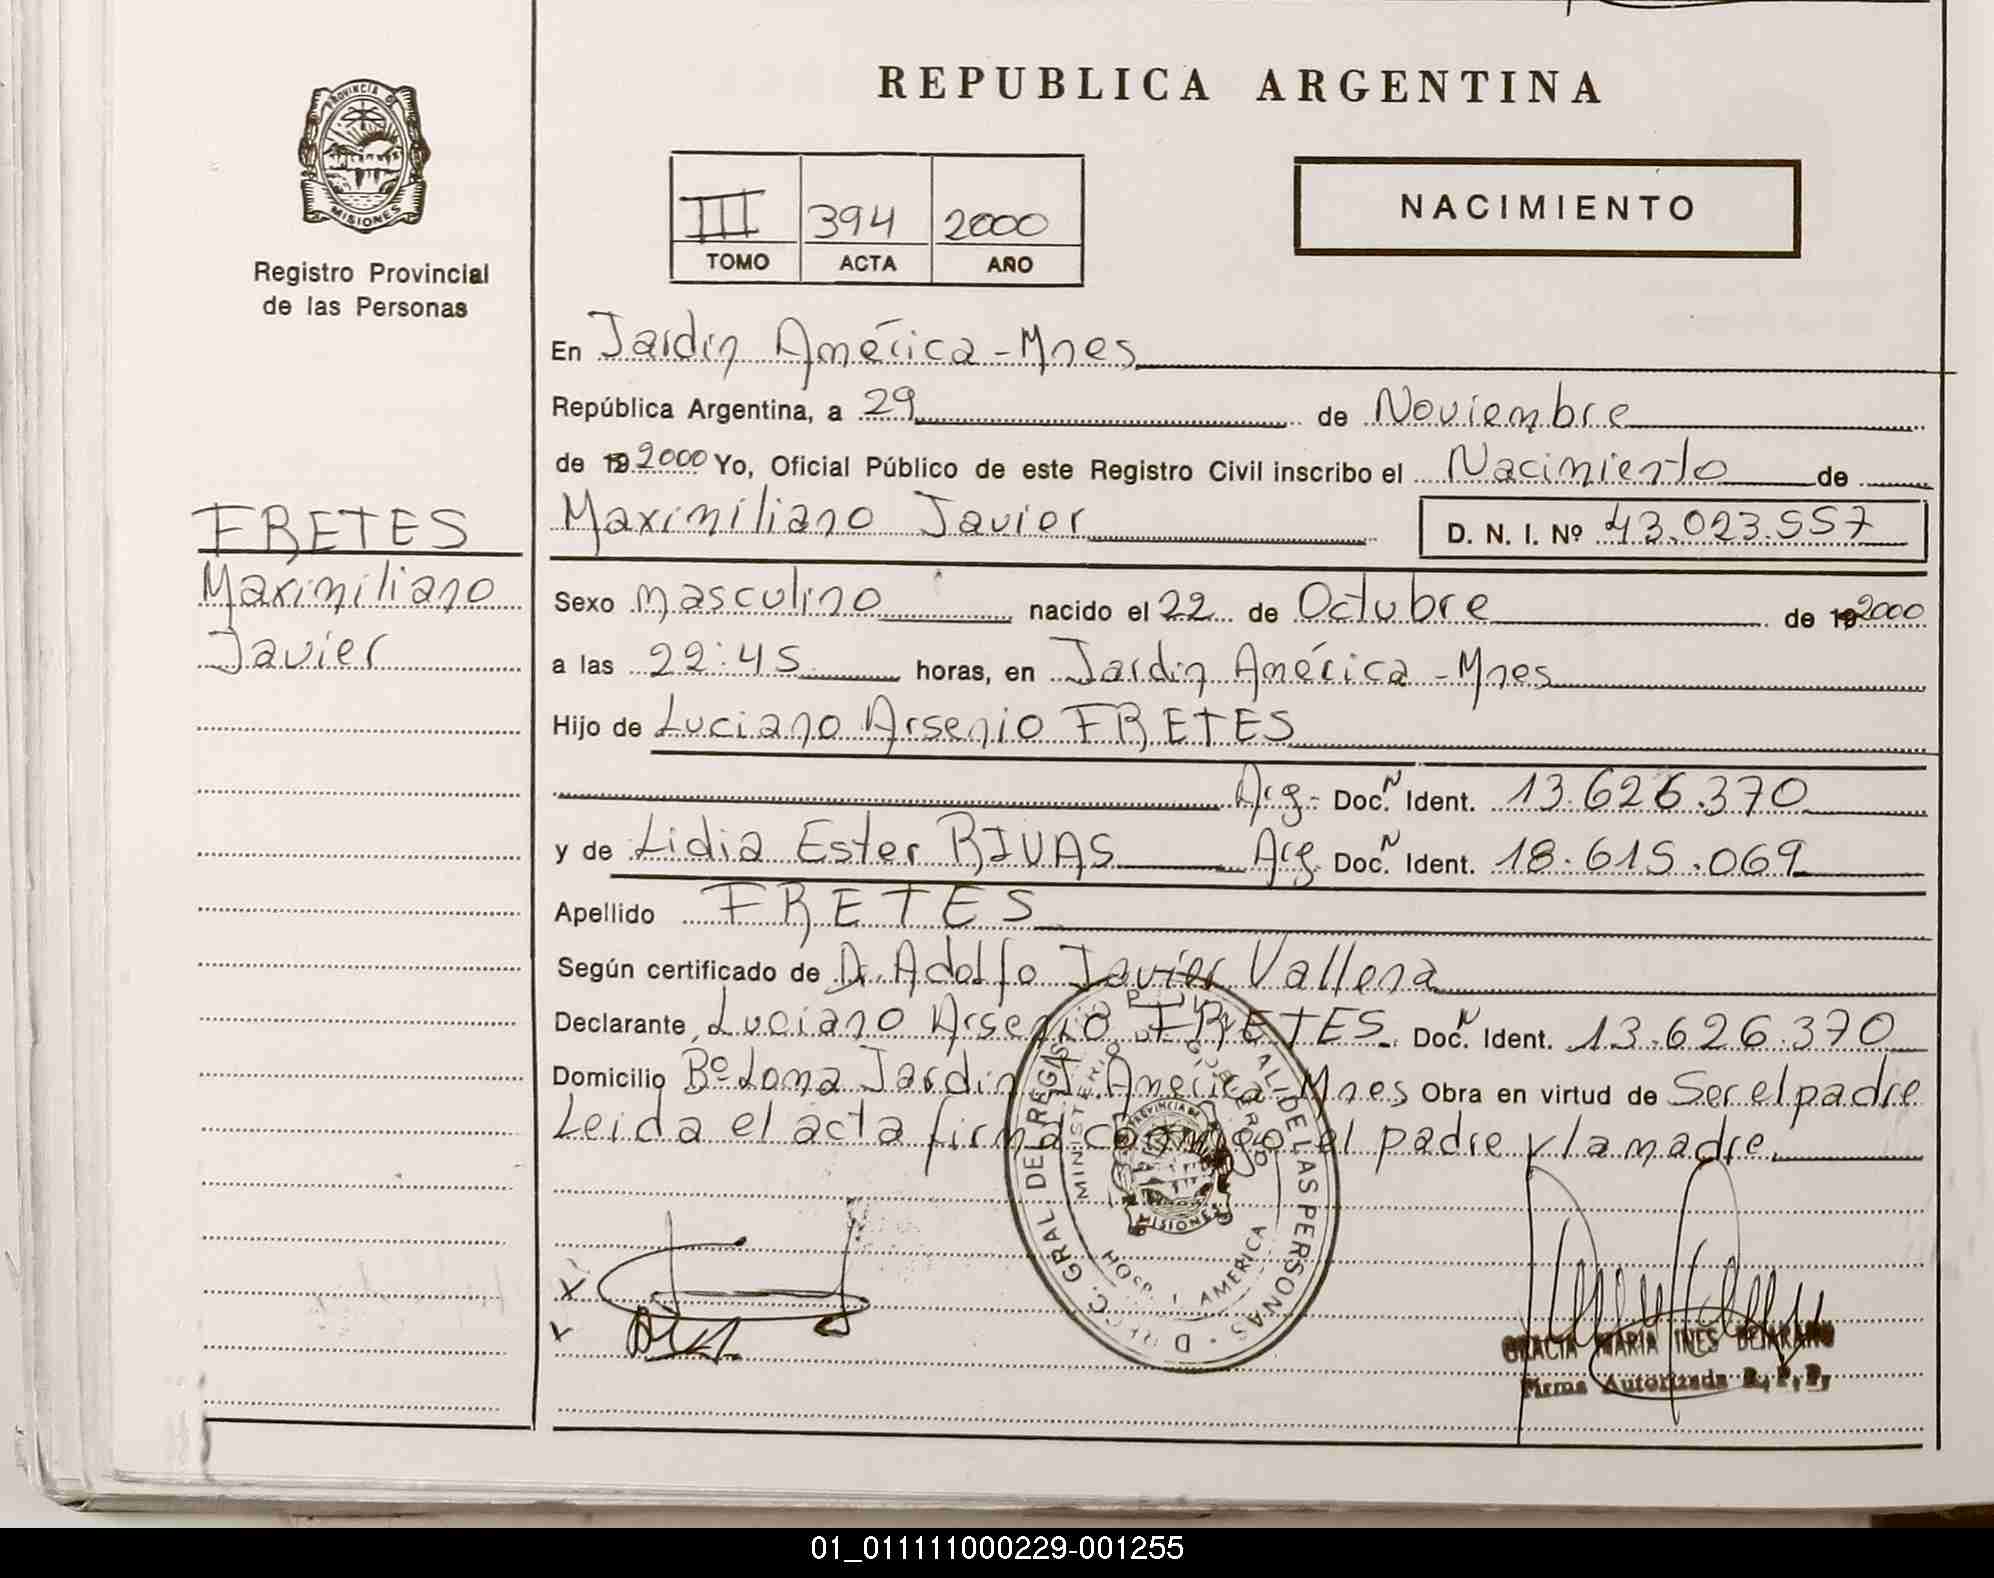 REPUBLICA ARGENTINA
PROVINCIA DE
MISIONES
Registro Provincial
de las Personas
III 394 2000
TOMO ACTA AÑO
NACIMIENTO
En Jardin América - Mnes
República Argentina, a 29 de Noviembre
de 19 2000 Yo, Oficial Público de este Registro Civil inscribo el Nacimiento de
FRETES
Maximiliano
Javier
Maximiliano Javier D. N. I. Nº 43.023.557
Sexo masculino nacido el 22 de Octubre de 19 2000
a las 22:45 horas, en Jardin América - Mnes
Hijo de Luciano Arsenio FRETES
Arg- Doc. N Ident. 13.626.370
y de Lidia Ester RIVAS Arg. Doc. N Ident. 18.615.069
Apellido FRETES
Según certificado de Dr. Adolfo Javier Vallena
Declarante Luciano Arsenio FRETES Doc. N Ident. 13.626.370
Domicilio Bº Loma Jardin J. América Mnes Obra en virtud de Ser el padre
Leida el acta firma conmigo el padre y la madre.
GRAL DEL REGISTRO PROVINCIAL DE LAS PERSONAS
MINISTERIO DE GOBIERNO
PROVINCIA DE
MISIONES
AMERICA
GRACIA MARIA INES BEJARANO
Firma Autorizada R. P. P.
01_011111000229-001255